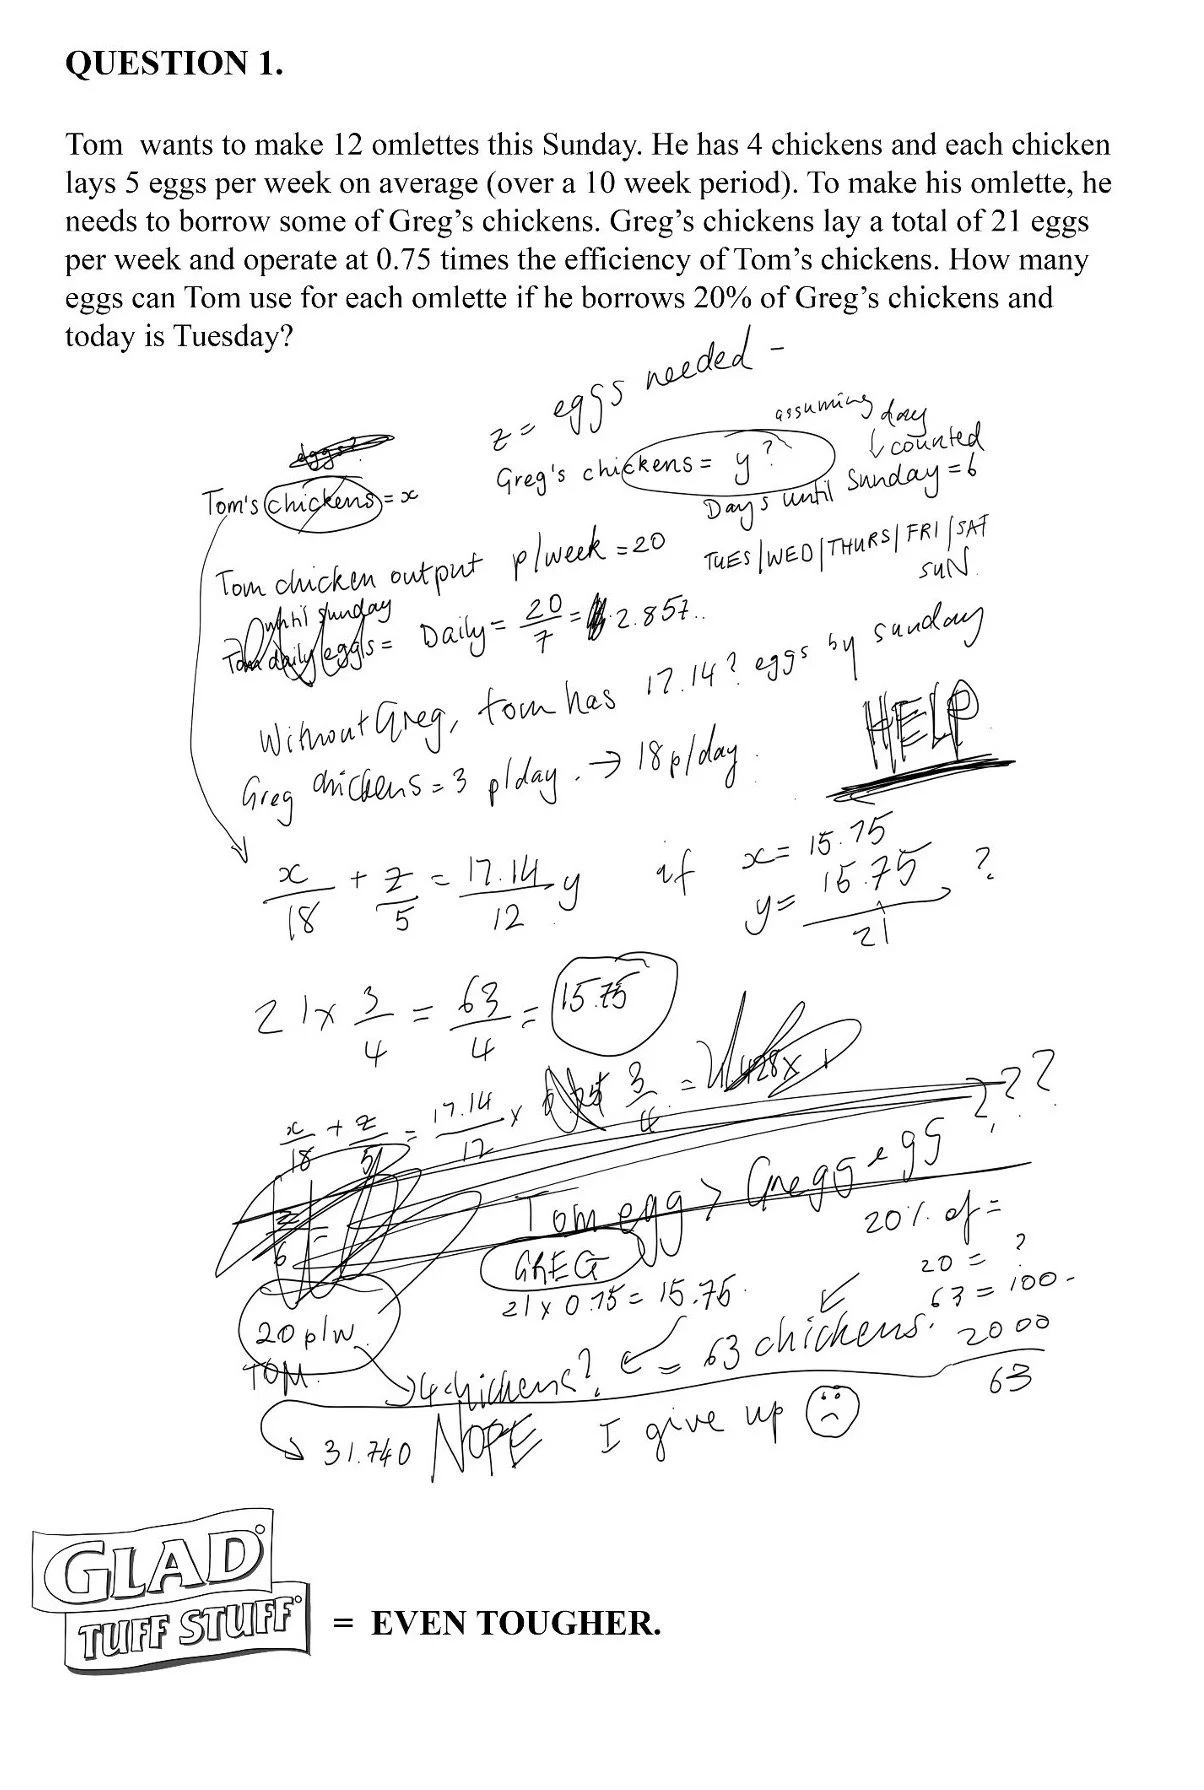 QUESTION 1.
Tom wants to make 12 omlettes this Sunday. He has 4 chickens and each chicken
lays 5 eggs per week on average (over a 10 week period). To make his omlette, he
needs to borrow some of Greg's chickens. Greg's chickens lay a total of 21 eggs
per week and operate at 0.75 times the efficiency of Tom's chickens. How many
eggs can Tom use for each omlette if he borrows 20% of Greg's chickens and
today is Tuesday?
z = eggs needed -
assuming day
↓ counted
eggs?
Greg's chickens = y?
Days until Sunday = 6
Tom's chickens = x
TUES | WED | THURS | FRI | SAT
SUN.
Tom chicken output p/week = 20
until sunday
Tom daily eggs = Daily = 20/7 = 2.857..
Without Greg, tom has 17.14? eggs by sunday
HELP
Greg chickens = 3 p/day. → 18 p/day.
x/18 + z/5 = 17.14/12 y if x = 15.75
y = 15.75/21 ?
21 x 3/4 = 63/4 = 15.75
x/18 + z/5 = 17.14/12 x 3/4 =
???
Tom egg > Gregg egg
20% of =
GREG
20 = ?
21 x 0.75 = 15.75.
63 = 100 -
20 p/w.
TOM.
4 chickens? ← = 63 chickens.
2000/63
31.740 NOPE I give up
GLAD
TUFF STUFF
= EVEN TOUGHER.